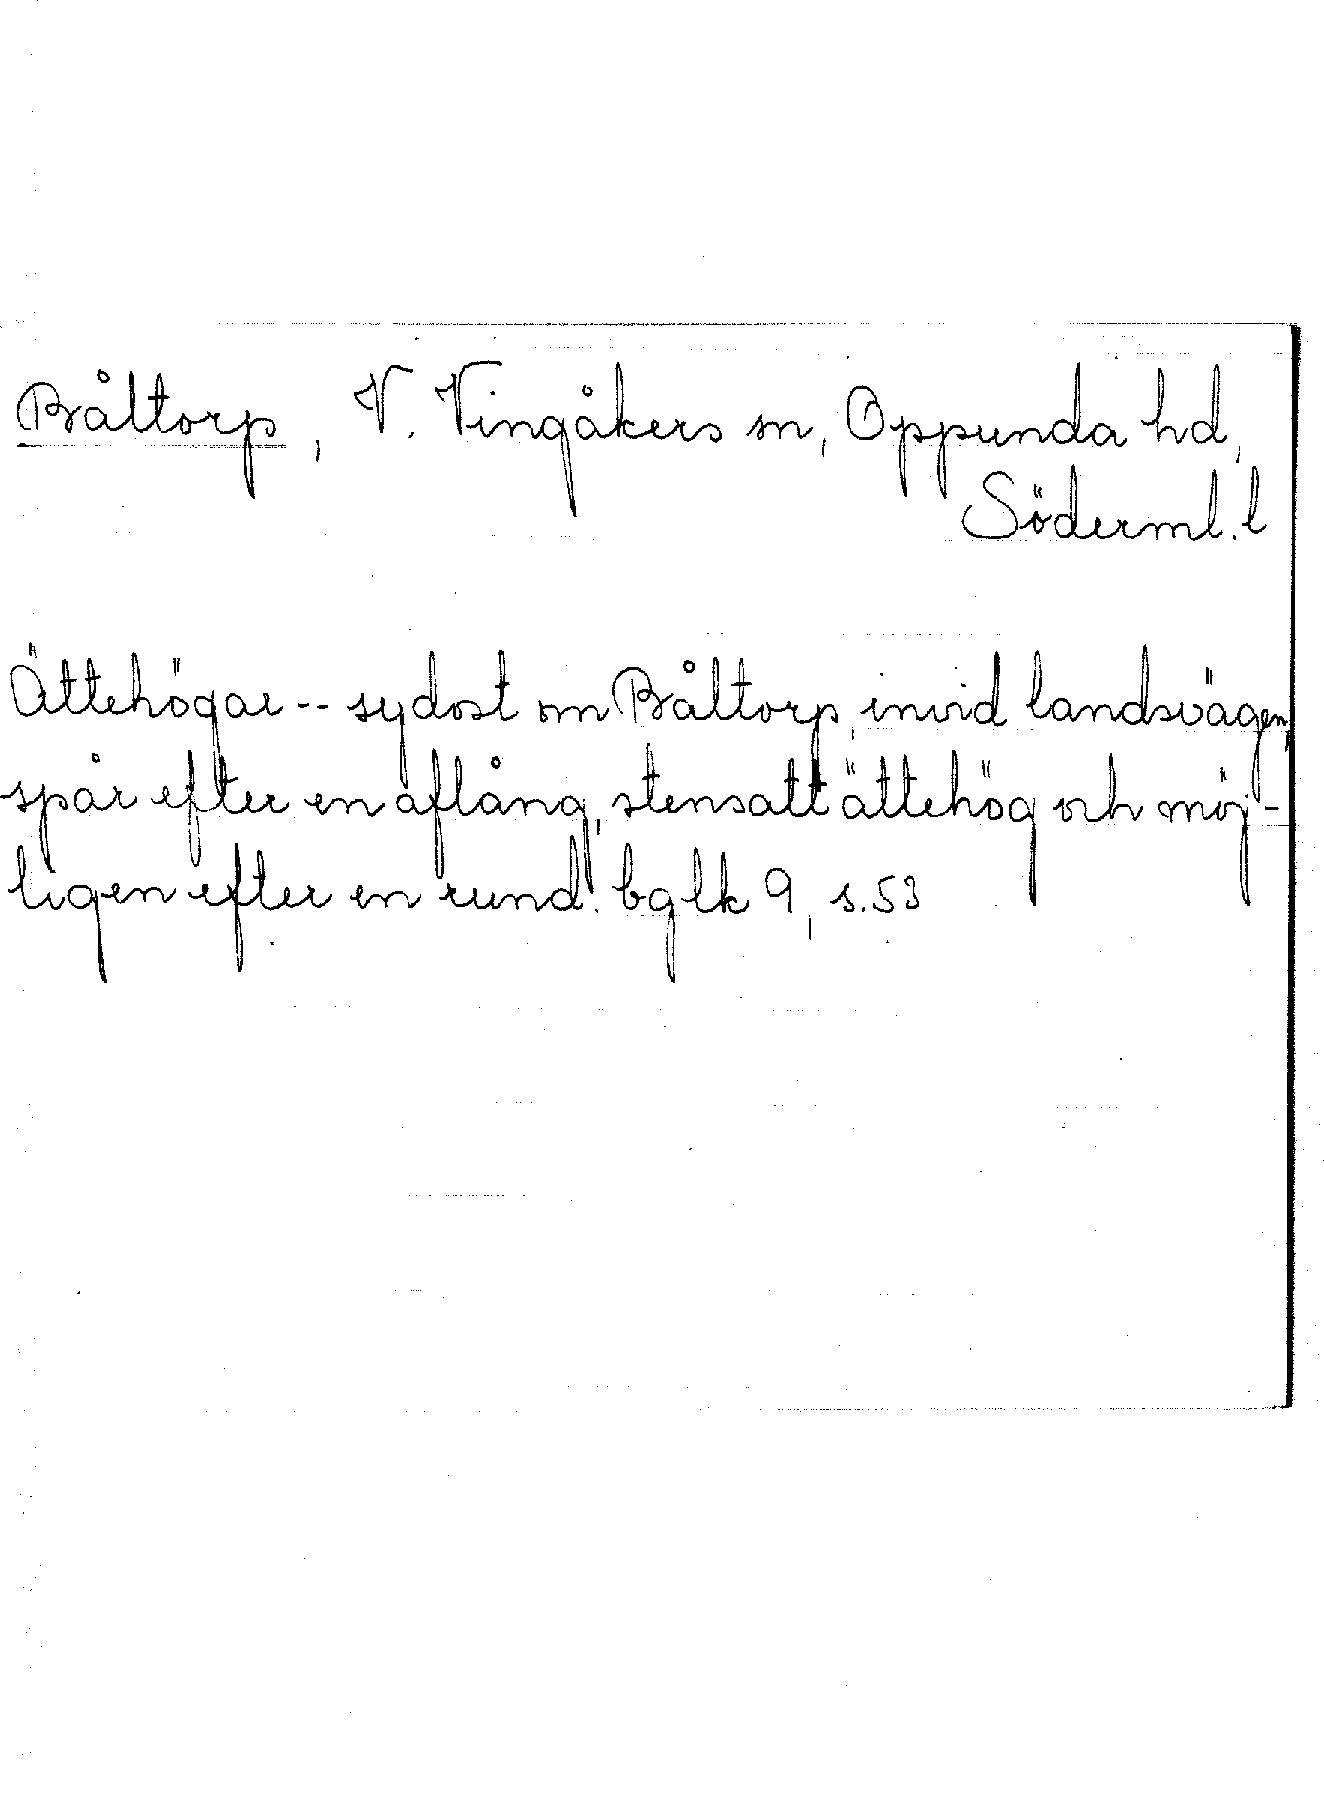 Båltorp, V. Vingåkers sn, Oppunda hd,
Söderml. l
Ättehögar -- sydost om Båltorp, invid landsvägen,
spår efter en aflång, stensatt ättehög och möj-
ligen efter en rund. bglk 9, s. 53